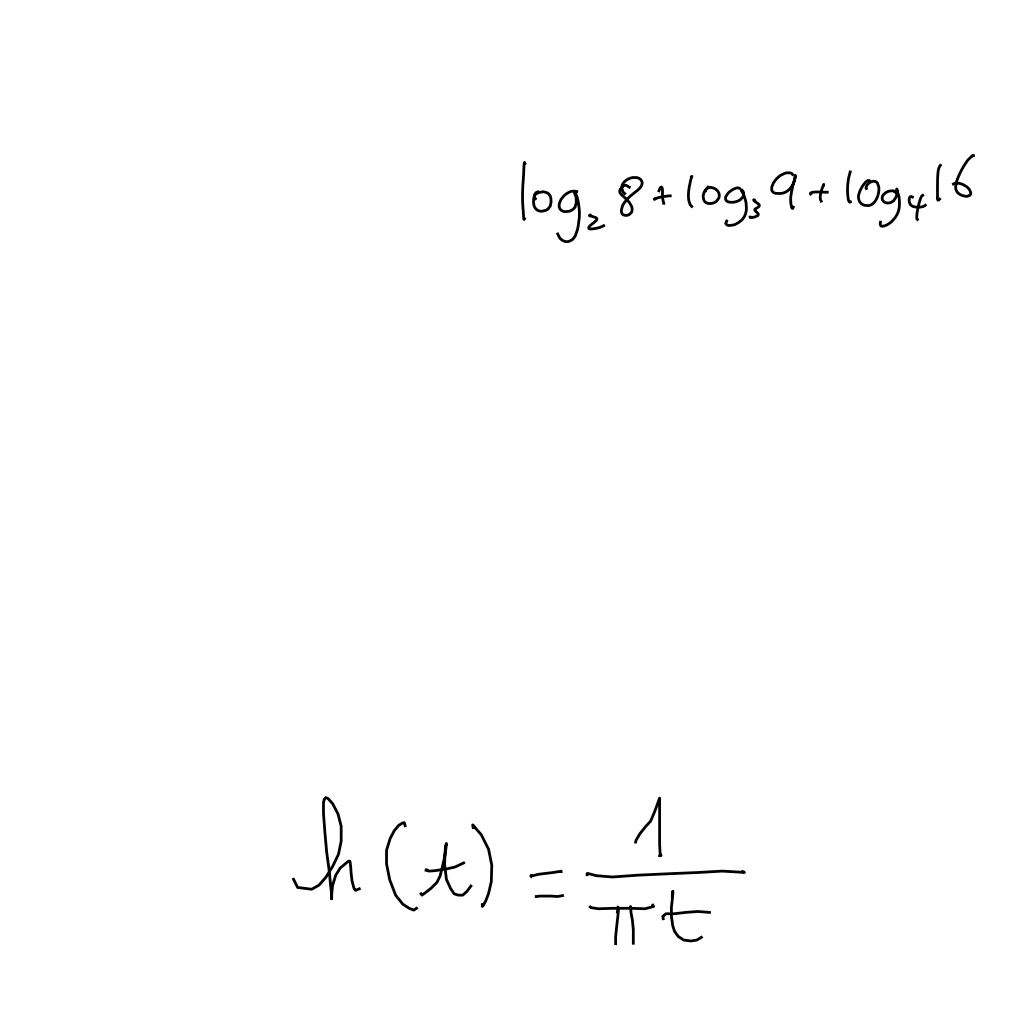 log₂ 8 + log₃ 9 + log₄ 16
h(t) = 1/πt